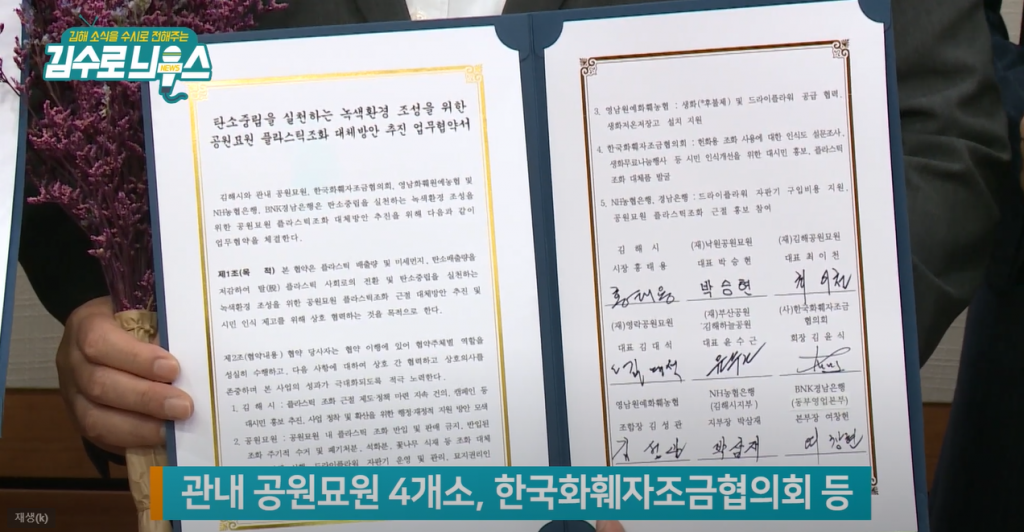 김해 소식을 수시로 전해주는
김수로 늬우스
NEWS
탄소중립을 실천하는 녹색환경 조성을 위한
공원묘원 플라스틱조화 대체방안 추진 업무협약서
김해시와 관내 공원묘원, 한국화훼자조금협의회, 영남화훼원예농협 및
NH농협은행, BNK경남은행은 탄소중립을 실천하는 녹색환경 조성을
위한 공원묘원 플라스틱조화 대체방안 추진을 위해 다음과 같이
업무협약을 체결한다.
제1조(목 적) 본 협약은 플라스틱 배출량 및 미세먼지, 탄소배출량을
저감하여 탈(脫) 플라스틱 사회로의 전환 및 탄소중립을 실천하는
녹색환경 조성을 위한 공원묘원 플라스틱조화 근절 대체방안 추진 및
시민 인식 제고를 위해 상호 협력하는 것을 목적으로 한다.
제2조(협약내용) 협약 당사자는 협약 이행에 있어 협약주체별 역할을
성실히 수행하고, 다음 사항에 대하여 상호 간 협력하고 상호의사를
존중하며 본 사업의 성과가 극대화되도록 적극 노력한다.
1. 김 해 시 : 플라스틱 조화 근절 제도·정책 마련 지속 건의, 캠페인 등
대시민 홍보 추진, 사업 정착 및 확산을 위한 행정·재정적 지원 방안 모색
2. 공원묘원 : 공원묘원 내 플라스틱 조화 반입 및 판매 금지, 반입된
조화 주기적 수거 및 폐기처분, 석화분, 꽃나무 식재 등 조화 대체
드라이플라워 자판기 운영 및 관리, 묘지관리인
3. 영남원예화훼농협 : 생화(*후불제) 및 드라이플라워 공급 협력,
생화저온저장고 설치 지원
4. 한국화훼자조금협의회 : 헌화용 조화 사용에 대한 인식도 설문조사,
생화무료나눔행사 등 시민 인식개선을 위한 대시민 홍보, 플라스틱
조화 대체품 발굴
5. NH농협은행, 경남은행 : 드라이플라워 자판기 구입비용 지원,
공원묘원 플라스틱조화 근절 홍보 참여
김 해 시 (재)낙원공원묘원 (재)김해공원묘원
시장 홍태용 대표 박승현 대표 최이천
홍태용 박승현 최이천
(재)영락공원묘원 (재)부산공원 김해하늘공원 (사)한국화훼자조금 협의회
대표 김대석 대표 윤수근 회장 김윤식
영남원예화훼농협 NH농협은행 (김해시지부) BNK경남은행 (동부영업본부)
조합장 김성관 지부장 박삼재 본부장 여창현
김성관 박삼재 여창현
관내 공원묘원 4개소, 한국화훼자조금협의회 등
재생(k)